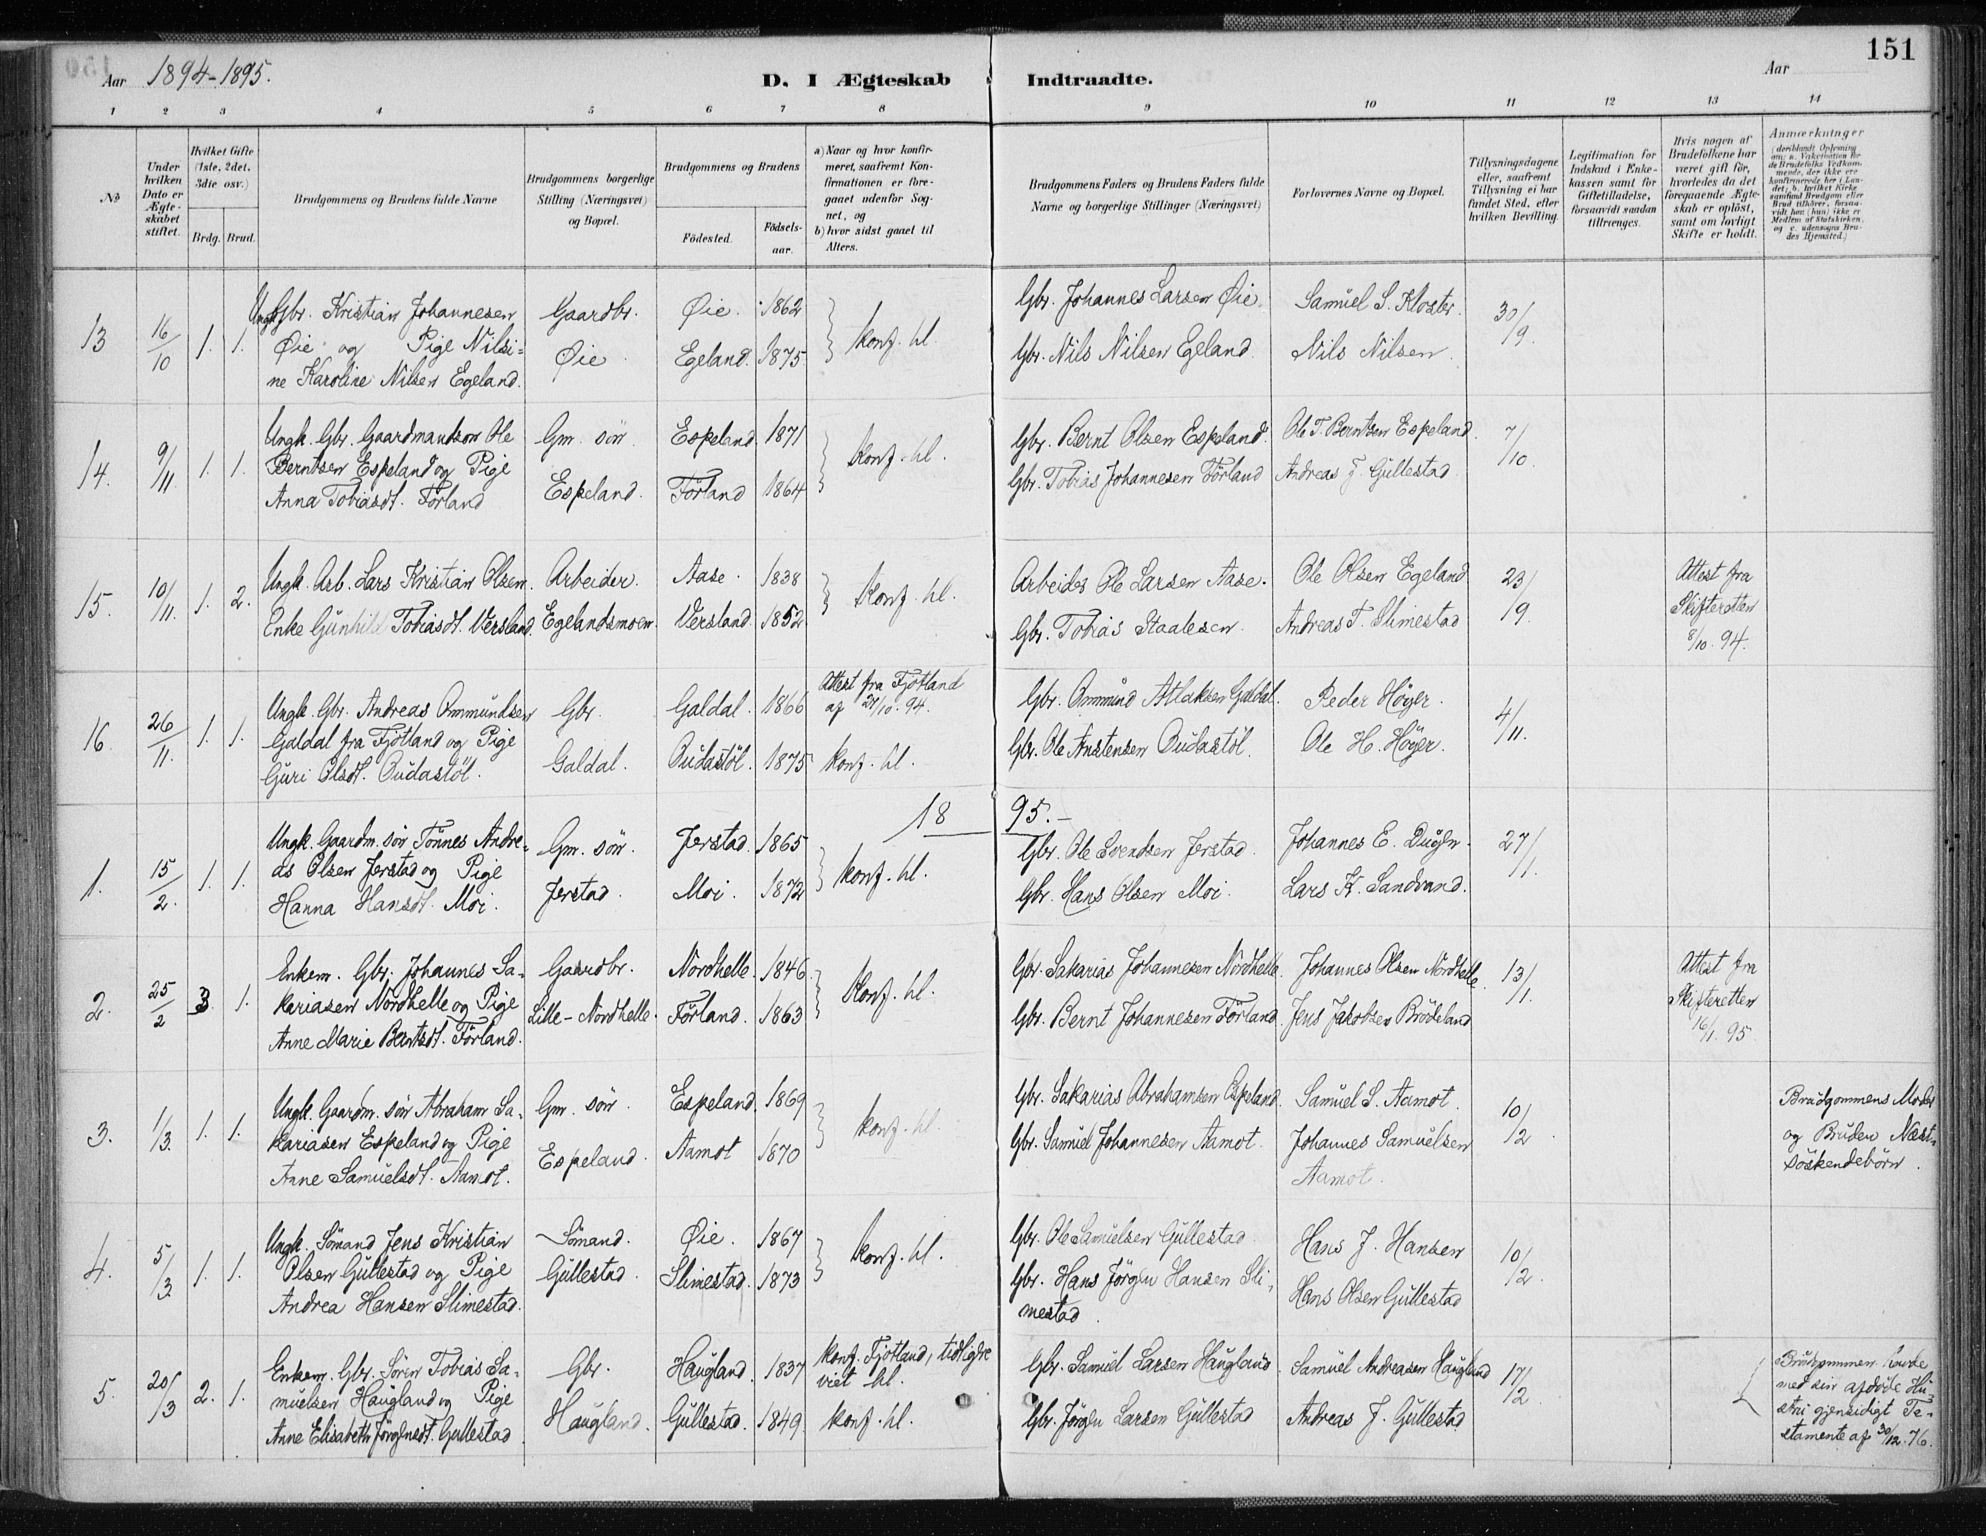 151
Aar 1894-1895.
D. I Ægteskab Indtraadte.
Aar
1 2 3 4 5 6 7 8 9 10 11 12 13 14
No
Under hvilken Dato er Ægte-skabet stiftet.
Hvilket Gifte (1ste, 2det, 3die osv.)
Brdg. Brud.
Brudgommens og Brudens fulde Navne
Brudgommens borgerlige Stilling (Næringsvei) og Bopæl.
Brudgommens og Brudens
Födested. Födsels-aar.
a) Naar og hvor konfir-meret, saafremt Kon-firmationen er fore-gaaet udenfor Sog-net, og
b) hvor sidst gaaet til Alters.
Brudgommens Faders og Brudens Faders fulde Navne og borgerlige Stillinger (Næringsvei)
Forlovernes Navne og Bopæl.
Tillysningsdagene eller, saafremt Tillysning ei har fundet Sted, efter hvilken Bevilling.
Legitimation for Indskud i Enke-kassen samt for Giftetilladelse, forsaavidt saadan tiltrænges.
Hvis nogen af Brudefolkene har været gift för, hvorledes da det foregaaende Ægte-skab er oplöst, samt om lovligt Skifte er holdt.
Anmærkninger
(deriblandt Oplysning om: a. Vakcination for de Brudefolks Vedkom-mende, der ikke ere konfirmerede her i Lan-det; b. hvilket Kirke-samfund Brudgom eller Brud tilhörer, forsaa-vidt han (hun) ikke er Medlem af Statskirken, og c. udensogns Bru-des Hjemsted.)
13 16/10 1. 1. Ungk. Gbr. Kristian Johannesen Gaardbr. Øie. 1862 konf. hl. Gbr. Johannes Larsen Øie. Samuel S. Kloster. 30/9.
Øie og Pige Nilsi- Øie Egeland. 1875. Gbr. Nils Nilsen Egeland. Nils Nilsen.
ne Karoline Nilsen Egeland.
14. 9/11 1. 1. Ungk. Gbr. Gaardmandsøn Ole Gm. søn Espeland. 1871 konf. hl. Gbr. Bernt Olsen Espeland. Ole T. Berntsen Espeland. 7/10
Berntsen Espeland og Pige Espeland. Förland 1864 Gbr. Tobias Johannesen Förland Andreas F. Gullestad
Anna Tobiasdt. Förland
15. 10/11. 1. 2. Ungk. Arb. Lars Kristian Olsen. Arbeider. Aase. 1838 konf. hl. Arbeider Ole Larsen Aase. Ole Olsen Egeland 23/19. Attest fra
Enke Gunhild Tobiasdt. Versland. Egelandsmoen. Versland 1852 Gbr. Tobias Staalesen. Andreas T. Slimestad Skifteretten
8/10. 94.
16 26/11. 1. 1. Ungk. Gbr. Andreas Ommundsen Gbr. Galdal. 1866 Attest fra Fjotland af 21/10. 94. Gbr. Ommund Atlaksen Galdal. Peder Höyer. 4/11.
Galdal fra Fjotland og Pige Galdal. Oudastöl. 1875 konf. hl. Gbr. Ole Anstensen Oudastöl. Ole H. Höyer.
Guri Olsdt. Oudastöl.
1895.
1. 15/2. 1. 1. Ungk. Gaardm. søn Tönnes Andre- Gm. søn. Jerstad. 1865 konf. hl. Gbr. Ole Svendsen Jerstad. Johannes E. 27/1.
as Olsen Jerstad og Pige Jerstad. Moi. 1872 Gbr. Hans Olsen Moi. Lars K. Sandvand.
Hanna Hansdt. Moi.
2. 25/2 3. 1. Enkem. Gbr. Johannes Sa- Gaardbr. Nordhelle. 1846 konf. hl. Gbr. Sakarias Johannesen Nordhelle. Johannes Olsen Nordhelle. 13/1. Attest fra
kariasen Nordhelle og Pige Lille-Nordhelle. Förland. 1863 Gbr. Bernt Johannesen Förland. Jens Jakobsen Brödeland Skifteretten
Anne Marie Berntsdt. Förland. 16/1. 95.
3. 1/3. 1. 1. Ungk. Gaardm. søn Abraham Sa- Gm. søn. Espeland. 1869 konf. hl. Gbr. Sakarias Abrahamsen Espeland. Samuel S. Aamot. 10/2 Brudgommens Moder
kariasen Espeland og Pige Espeland. Aamot 1870 Gbr. Samuel Johannesen Aamot. Johannes Samuelsen og Bruden Næst-
Anne Samuelsdt. Aamot. Aamot. söskendebörn.
4. 5/3. 1. 1. Ungk. Sömand Jens Kristian Sömand. Øie. 1867 konf. hl. Gbr. Ole Samuelsen Gullestad. Hans J. Hansen 10/2.
Olsen Gullestad og Pige Gullestad. Slimestad. 1873 Gbr. Hans Jörgen Hansen Sli- Hans Olsen Gullestad
Andrea Hansen Slimestad. mestad.
5. 20/3 2. 1. Enkem. Gbr. Sören Tobias Sa- Gbr. Haugland. 1837 konf. Fjotland, tidligere Gbr. Samuel Larsen Haugland. Samuel Andreasen Haugland 17/2 Brudgommen havde
muelsen Haugland og Pige Haugland. Gullestad. 1849. viet hl. konf. hl. Gbr. Jörgen Larsen Gullestad Andreas J. Gullestad. med sin afdöde Hu-
Anne Elisabeth Jörgensdt. Gullestad stru gjensidigt Te-
stamente af 30/12. 76.